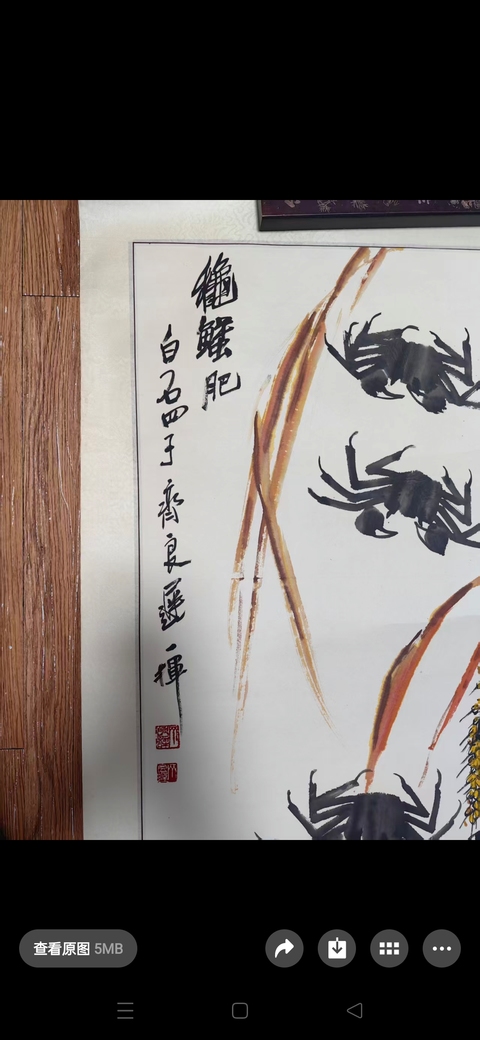 穐蠏肥
白石四子齊良遲一揮
查看原图 5MB